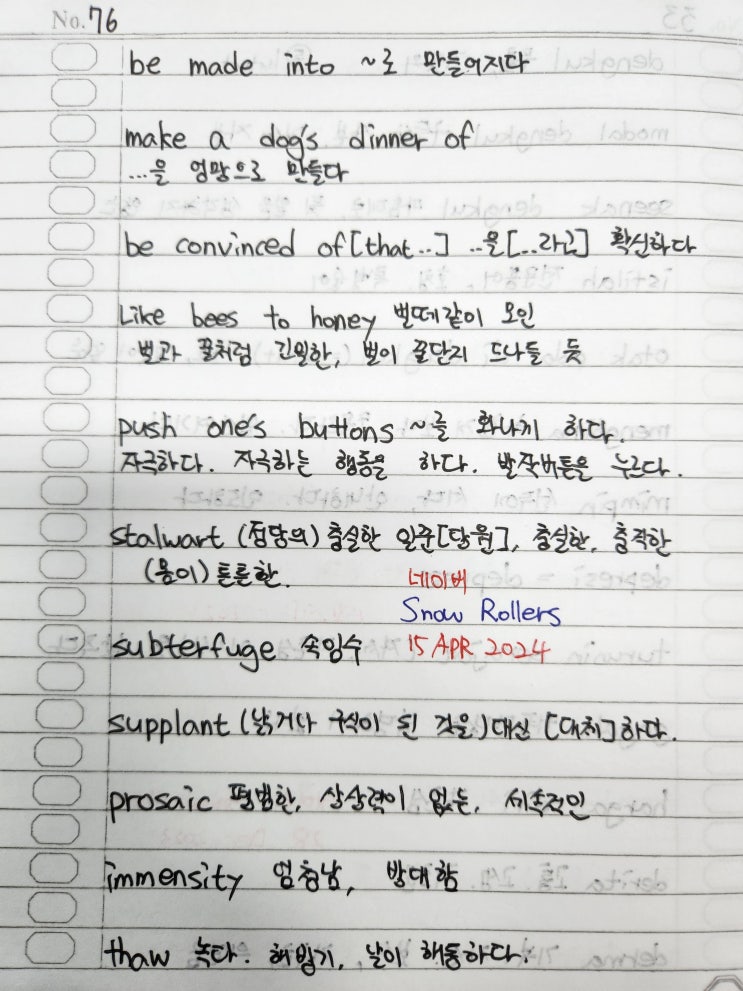 No. 76
be made into ~로 만들어지다
make a dog's dinner of
...을 엉망으로 만들다
be convinced of [that..] ..을[..라고] 확신하다
Like bees to honey 벌떼같이 모인
벌과 꿀처럼 긴밀한, 벌이 꿀단지 드나들 듯
push one's buttons ~를 화나게 하다.
자극하다. 자극하는 행동을 하다. 발작버튼을 누르다.
stalwart (정당의) 충실한 일꾼[당원], 충실한, 충직한
(몸이) 튼튼한.
네이버
Snow Rollers
subterfuge 속임수 15 APR 2024
supplant (낡거나 구식이 된 것을) 대신 [대체]하다.
prosaic 평범한, 상상력이 없는, 세속적인
immensity 엄청남, 방대함
thaw 녹다. 해빙기, 날이 해동하다.